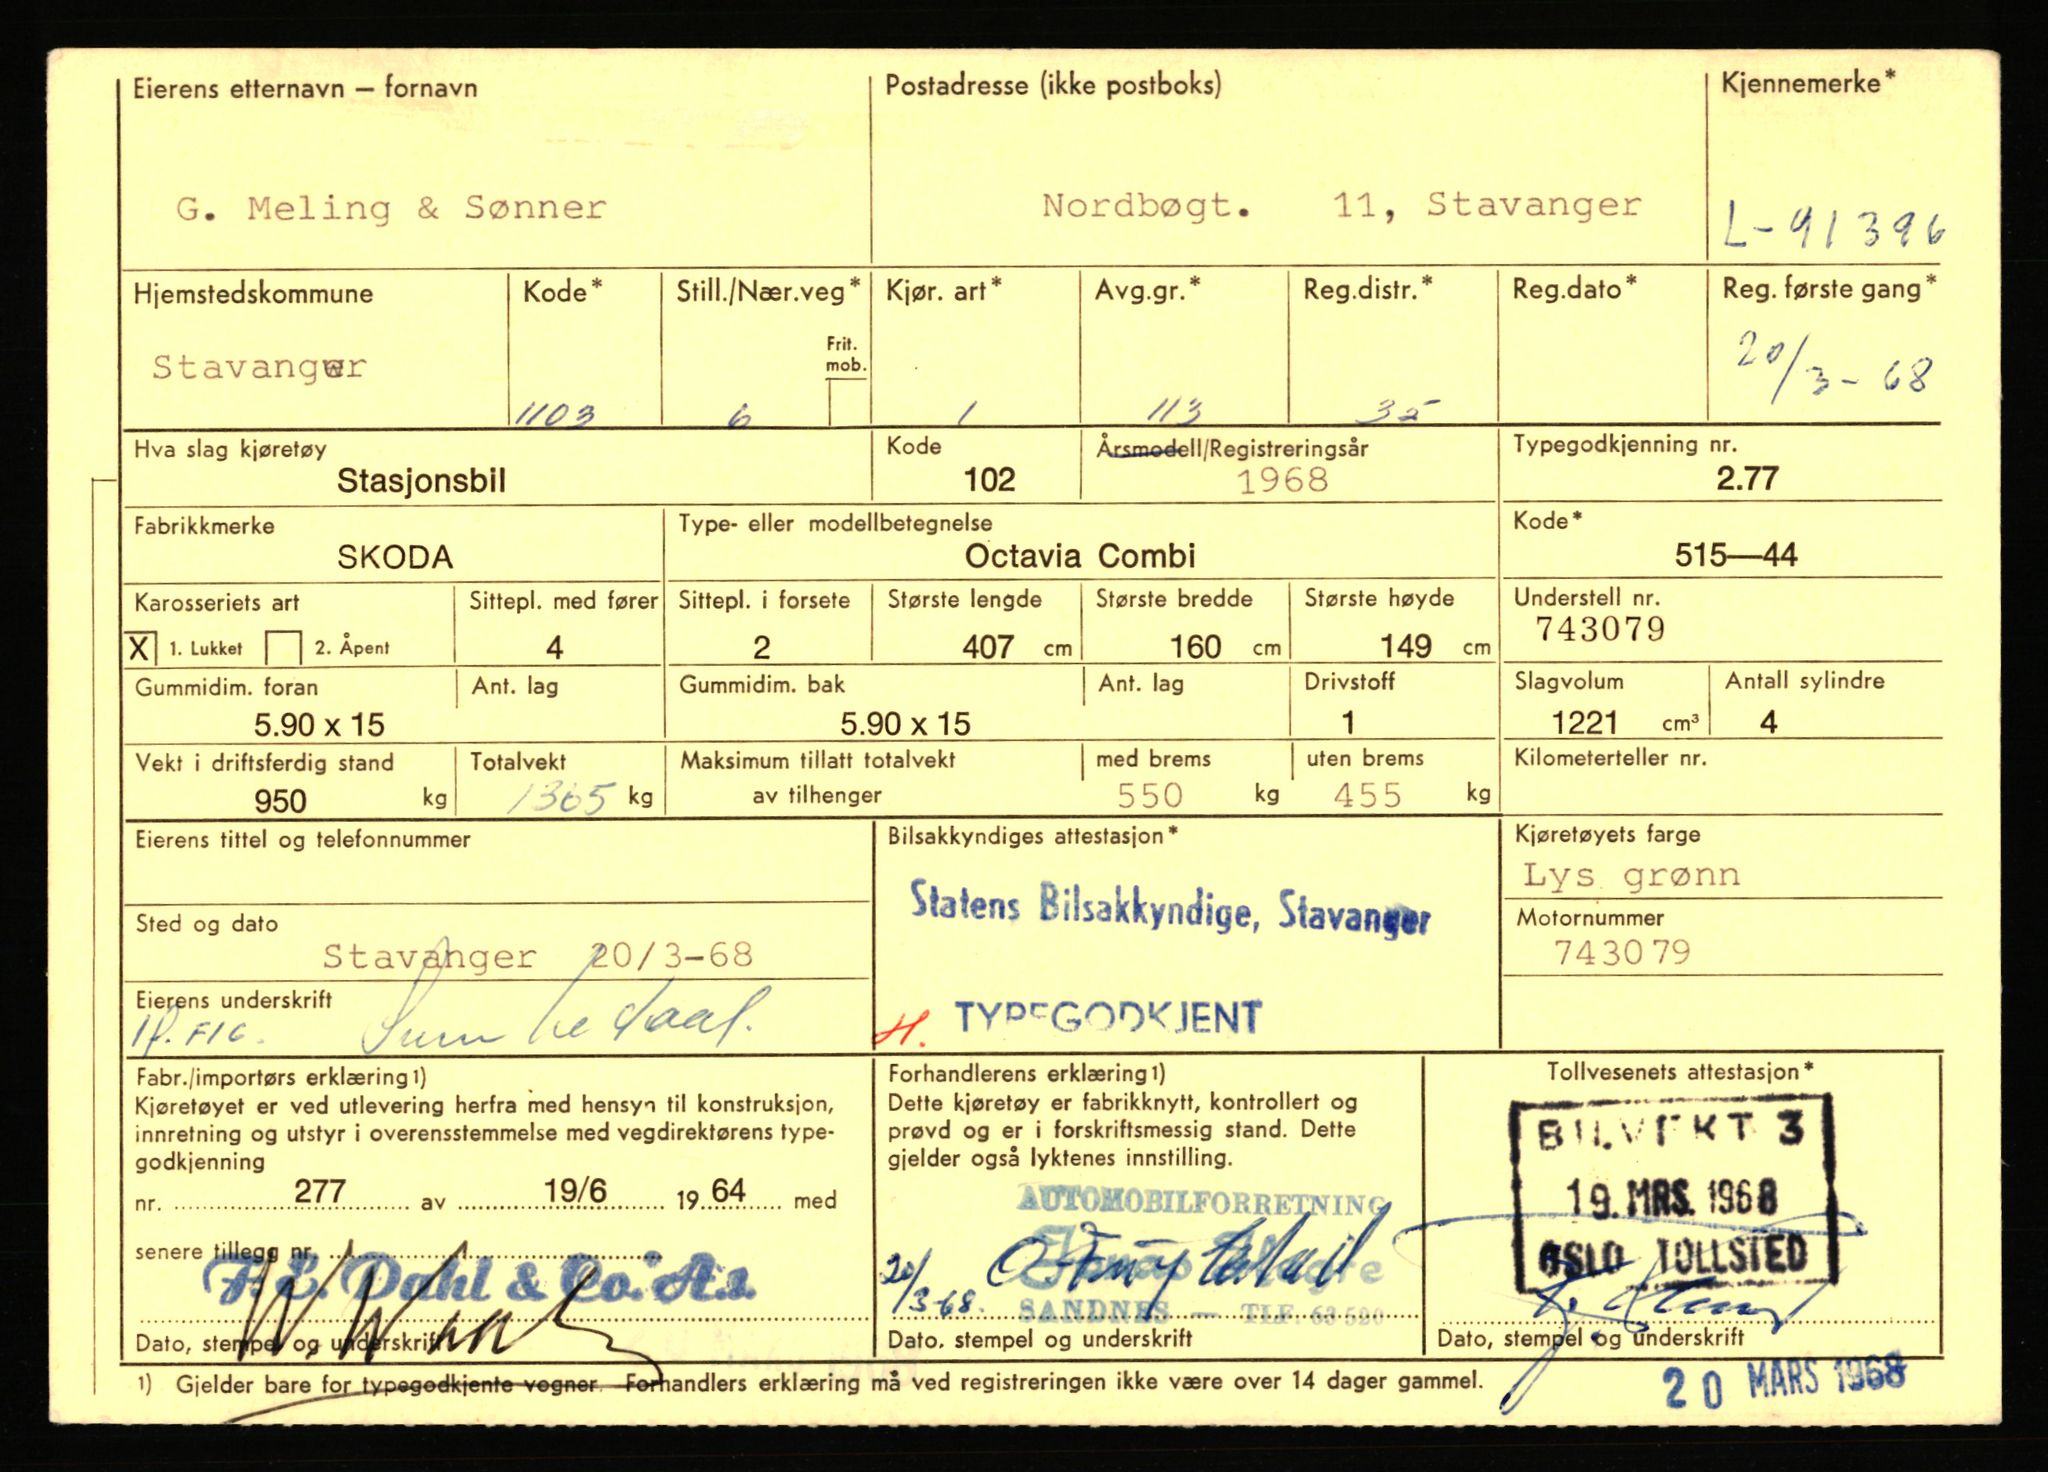 Eierens etternavn – fornavn
Postadresse (ikke postboks)
Kjennemerke*
G. Meling & Sønner
Nordbøgt. 11, Stavanger
L-91396
Hjemstedskommune
Kode*
Still./Nær.veg*
Kjør. art*
Avg.gr.*
Reg.distr.*
Reg.dato*
Reg. første gang*
Stavanger
Frit.
mob.
1103
6
1
113
35
20/3-68
Hva slag kjøretøy
Kode
Årsmodell/Registreringsår
Typegodkjenning nr.
Stasjonsbil
102
1968
2.77
Fabrikkmerke
Type- eller modellbetegnelse
Kode*
SKODA
Octavia Combi
515—44
Karosseriets art
Sittepl. med fører
Sittepl. i forsete
Største lengde
Største bredde
Største høyde
Understell nr.
X 1. Lukket
2. Åpent
4
2
407 cm
160 cm
149 cm
743079
Gummidim. foran
Ant. lag
Gummidim. bak
Ant. lag
Drivstoff
Slagvolum
Antall sylindre
5.90 x 15
5.90 x 15
1
1221 cm³
4
Vekt i driftsferdig stand
Totalvekt
Maksimum tillatt totalvekt
med brems
uten brems
Kilometerteller nr.
950 kg
1365 kg
av tilhenger
550 kg
455 kg
Eierens tittel og telefonnummer
Bilsakkyndiges attestasjon*
Kjøretøyets farge
Lys grønn
Statens Bilsakkyndige, Stavanger
Sted og dato
Motornummer
Stavanger 20/3-68
743079
Eierens underskrift
H. TYPEGODKJENT
Fabr./importørs erklæring1)
Kjøretøyet er ved utlevering herfra med hensyn til konstruksjon,
innretning og utstyr i overensstemmelse med vegdirektørens type-
godkjenning
nr. 277 av 19/6 1964 med
senere tillegg nr.
F.E. Dahl & Co. A.s.
Dato, stempel og underskrift
Forhandlerens erklæring1)
Dette kjøretøy er fabrikknytt, kontrollert og
prøvd og er i forskriftsmessig stand. Dette
gjelder også lyktenes innstilling.
AUTOMOBILFORRETNING
20/3-68.
SANDNES — TLF. 63 520
Dato, stempel og underskrift
Tollvesenets attestasjon*
BILVEKT 3
19. MRS. 1968
OSLO TOLLSTED
Dato, stempel og underskrift
1) Gjelder bare for typegodkjente vogner. Forhandlers erklæring må ved registreringen ikke være over 14 dager gammel.
20 MARS 1968